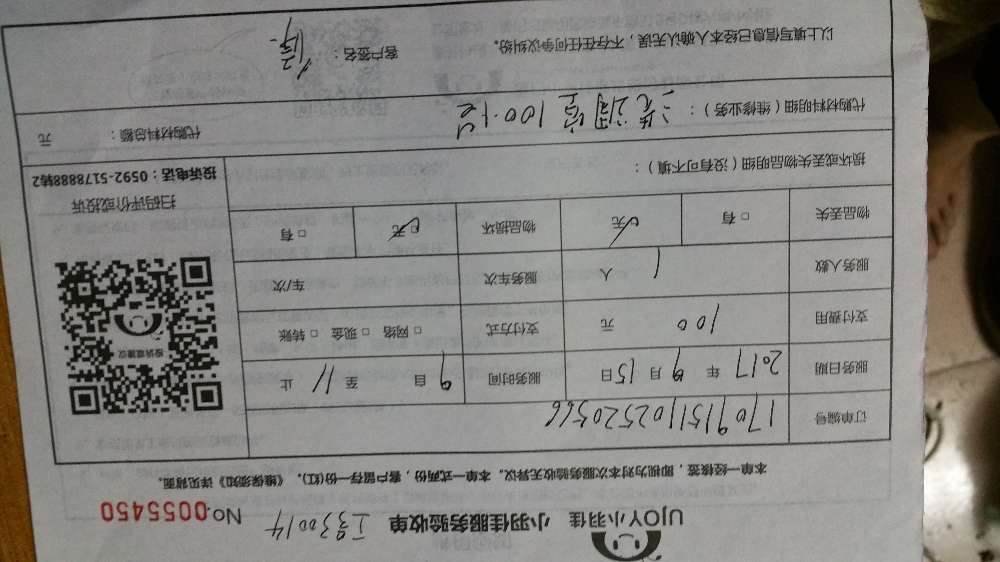 UJOY小羽佳 小羽佳服务验收单 工号30014 No.0055450
本单一经核签，即视为对本次服务验收无异议。本单一式两份，客户留存一份(红)。《维保须知》详见背面。
订单编号 17091511025205​66
服务日期 2017 年 9 月 15 日 服务时间 9 自 至 11 止
支付费用 100 元 支付方式 □ 网络 □ 现金 □ 转账
服务人数 1 人 服务车次 车/次
物品丢失 □ 有 ☑ 无 物品损坏 ☑ 无 □ 有
投诉或建议
扫码评价或投诉
投诉电话：0592-5178888转2
损坏或丢失物品明细（没有可不填）：
代购材料明细（维修业务）： 洗调 100.1台 代购材料总额： 元
以上填写信息已经本人确认无误，不存在任何争议纠纷。 客户签名：